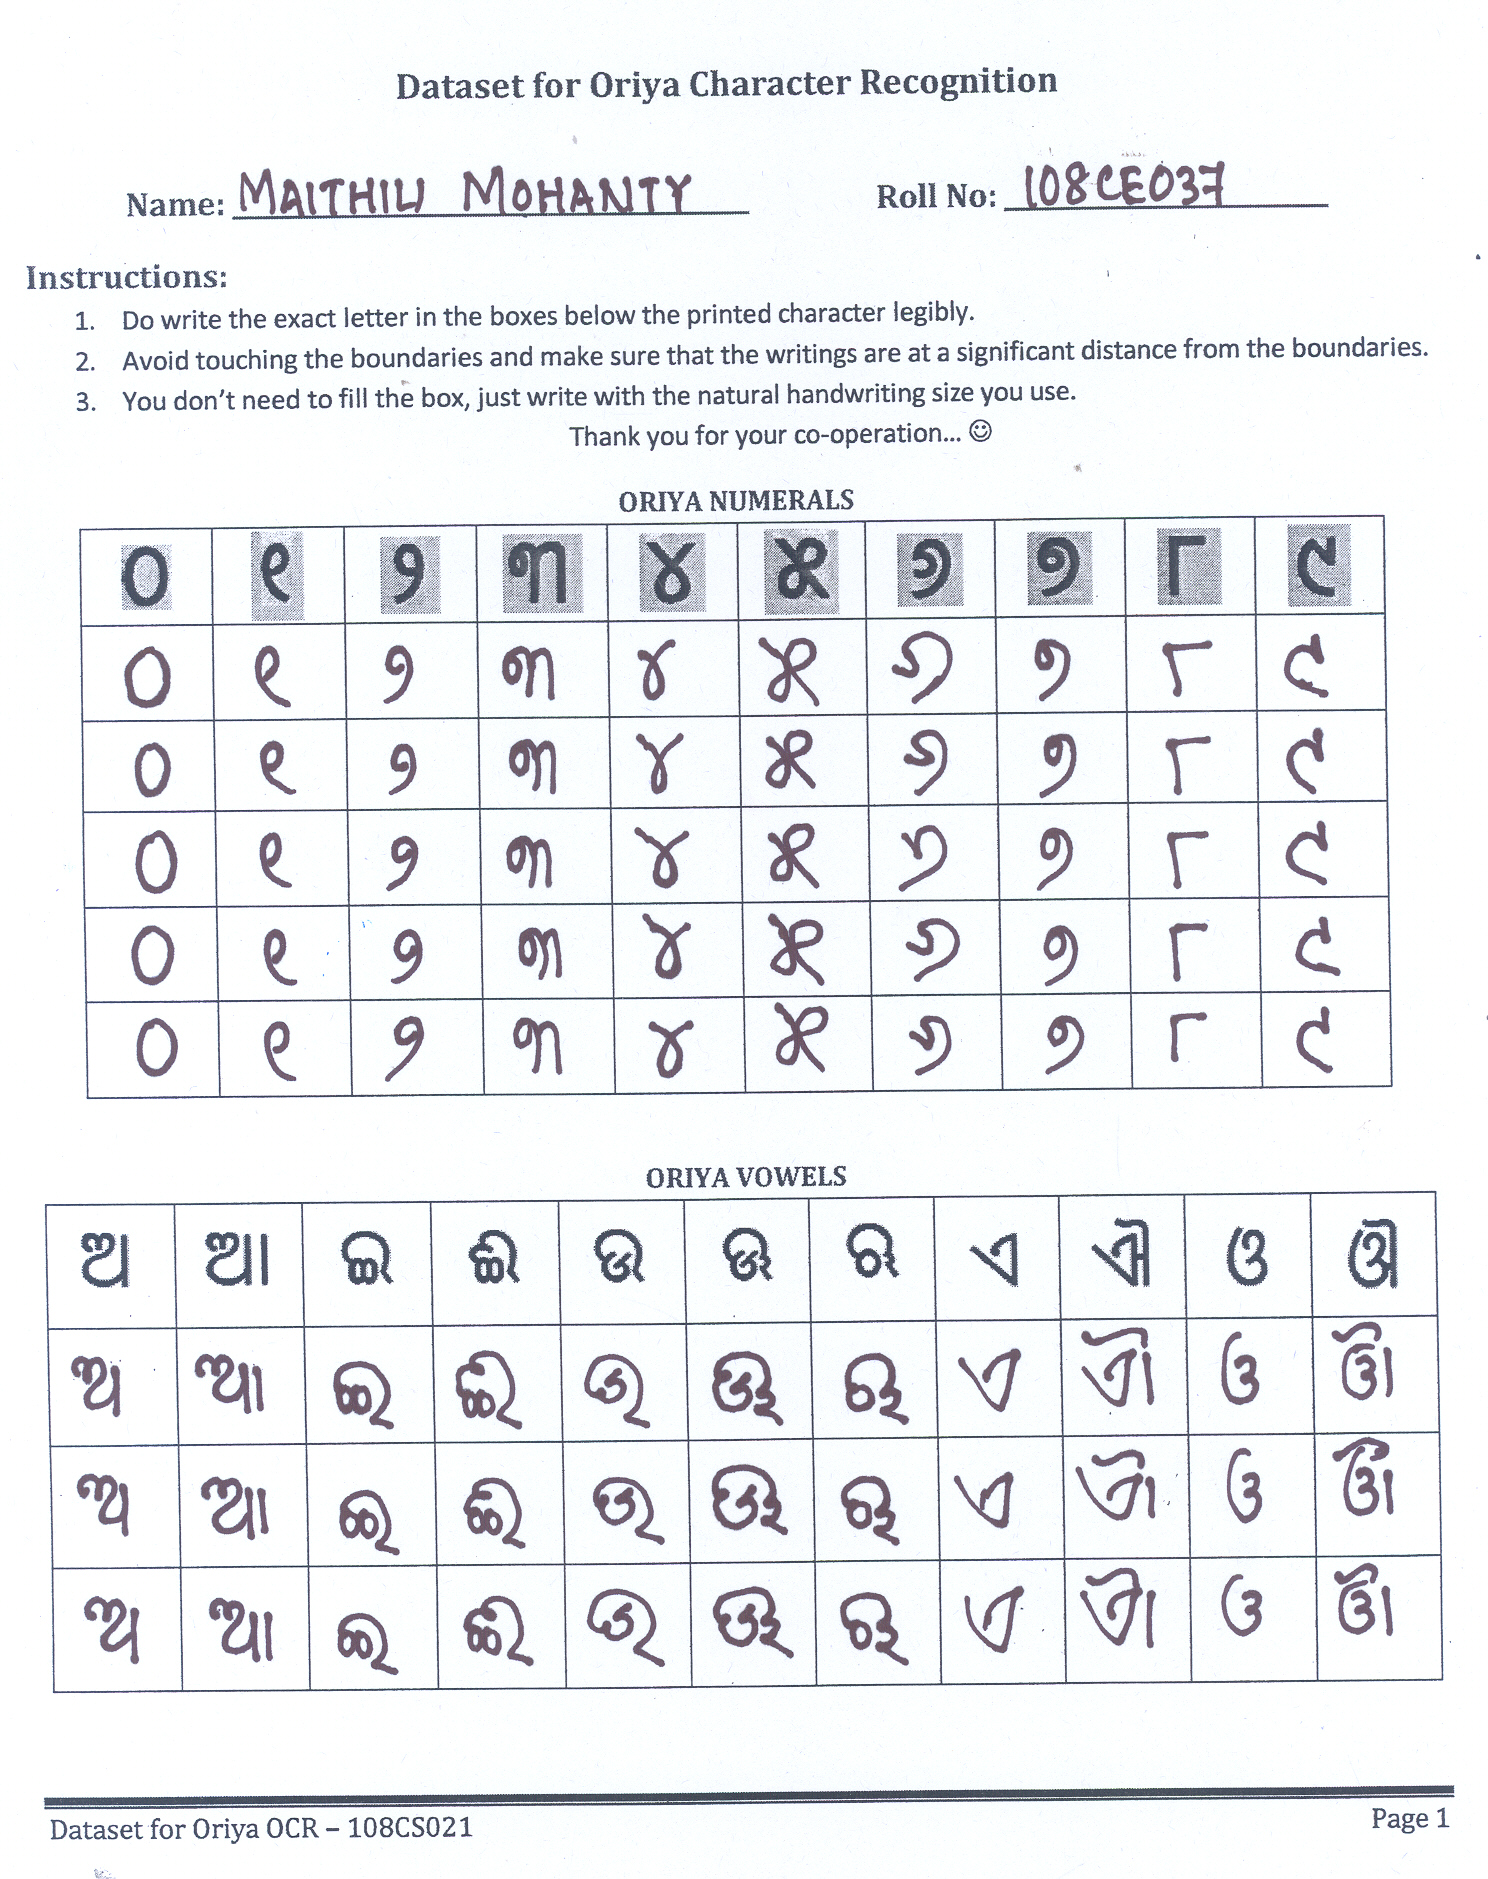 Dataset for Oriya Character Recognition
Name: MAITHILI MOHANTY Roll No: 108CE037
Instructions:
1. Do write the exact letter in the boxes below the printed character legibly.
2. Avoid touching the boundaries and make sure that the writings are at a significant distance from the boundaries.
3. You don't need to fill the box, just write with the natural handwriting size you use.
Thank you for your co-operation... ☺
ORIYA NUMERALS
୦ ୧ ୨ ୩ ୪ ୫ ୬ ୭ ୮ ୯
୦ ୧ ୨ ୩ ୪ ୫ ୬ ୭ ୮ ୯
୦ ୧ ୨ ୩ ୪ ୫ ୬ ୭ ୮ ୯
୦ ୧ ୨ ୩ ୪ ୫ ୬ ୭ ୮ ୯
୦ ୧ ୨ ୩ ୪ ୫ ୬ ୭ ୮ ୯
୦ ୧ ୨ ୩ ୪ ୫ ୬ ୭ ୮ ୯
ORIYA VOWELS
ଅ ଆ ଇ ଈ ଉ ଊ ଋ ଏ ଐ ଓ ଔ
ଅ ଆ ଇ ଈ ଉ ଊ ଋ ଏ ଐ ଓ ଔ
ଅ ଆ ଇ ଈ ଉ ଊ ଋ ଏ ଐ ଓ ଔ
ଅ ଆ ଇ ଈ ଉ ଊ ଋ ଏ ଐ ଓ ଔ
Dataset for Oriya OCR – 108CS021 Page 1